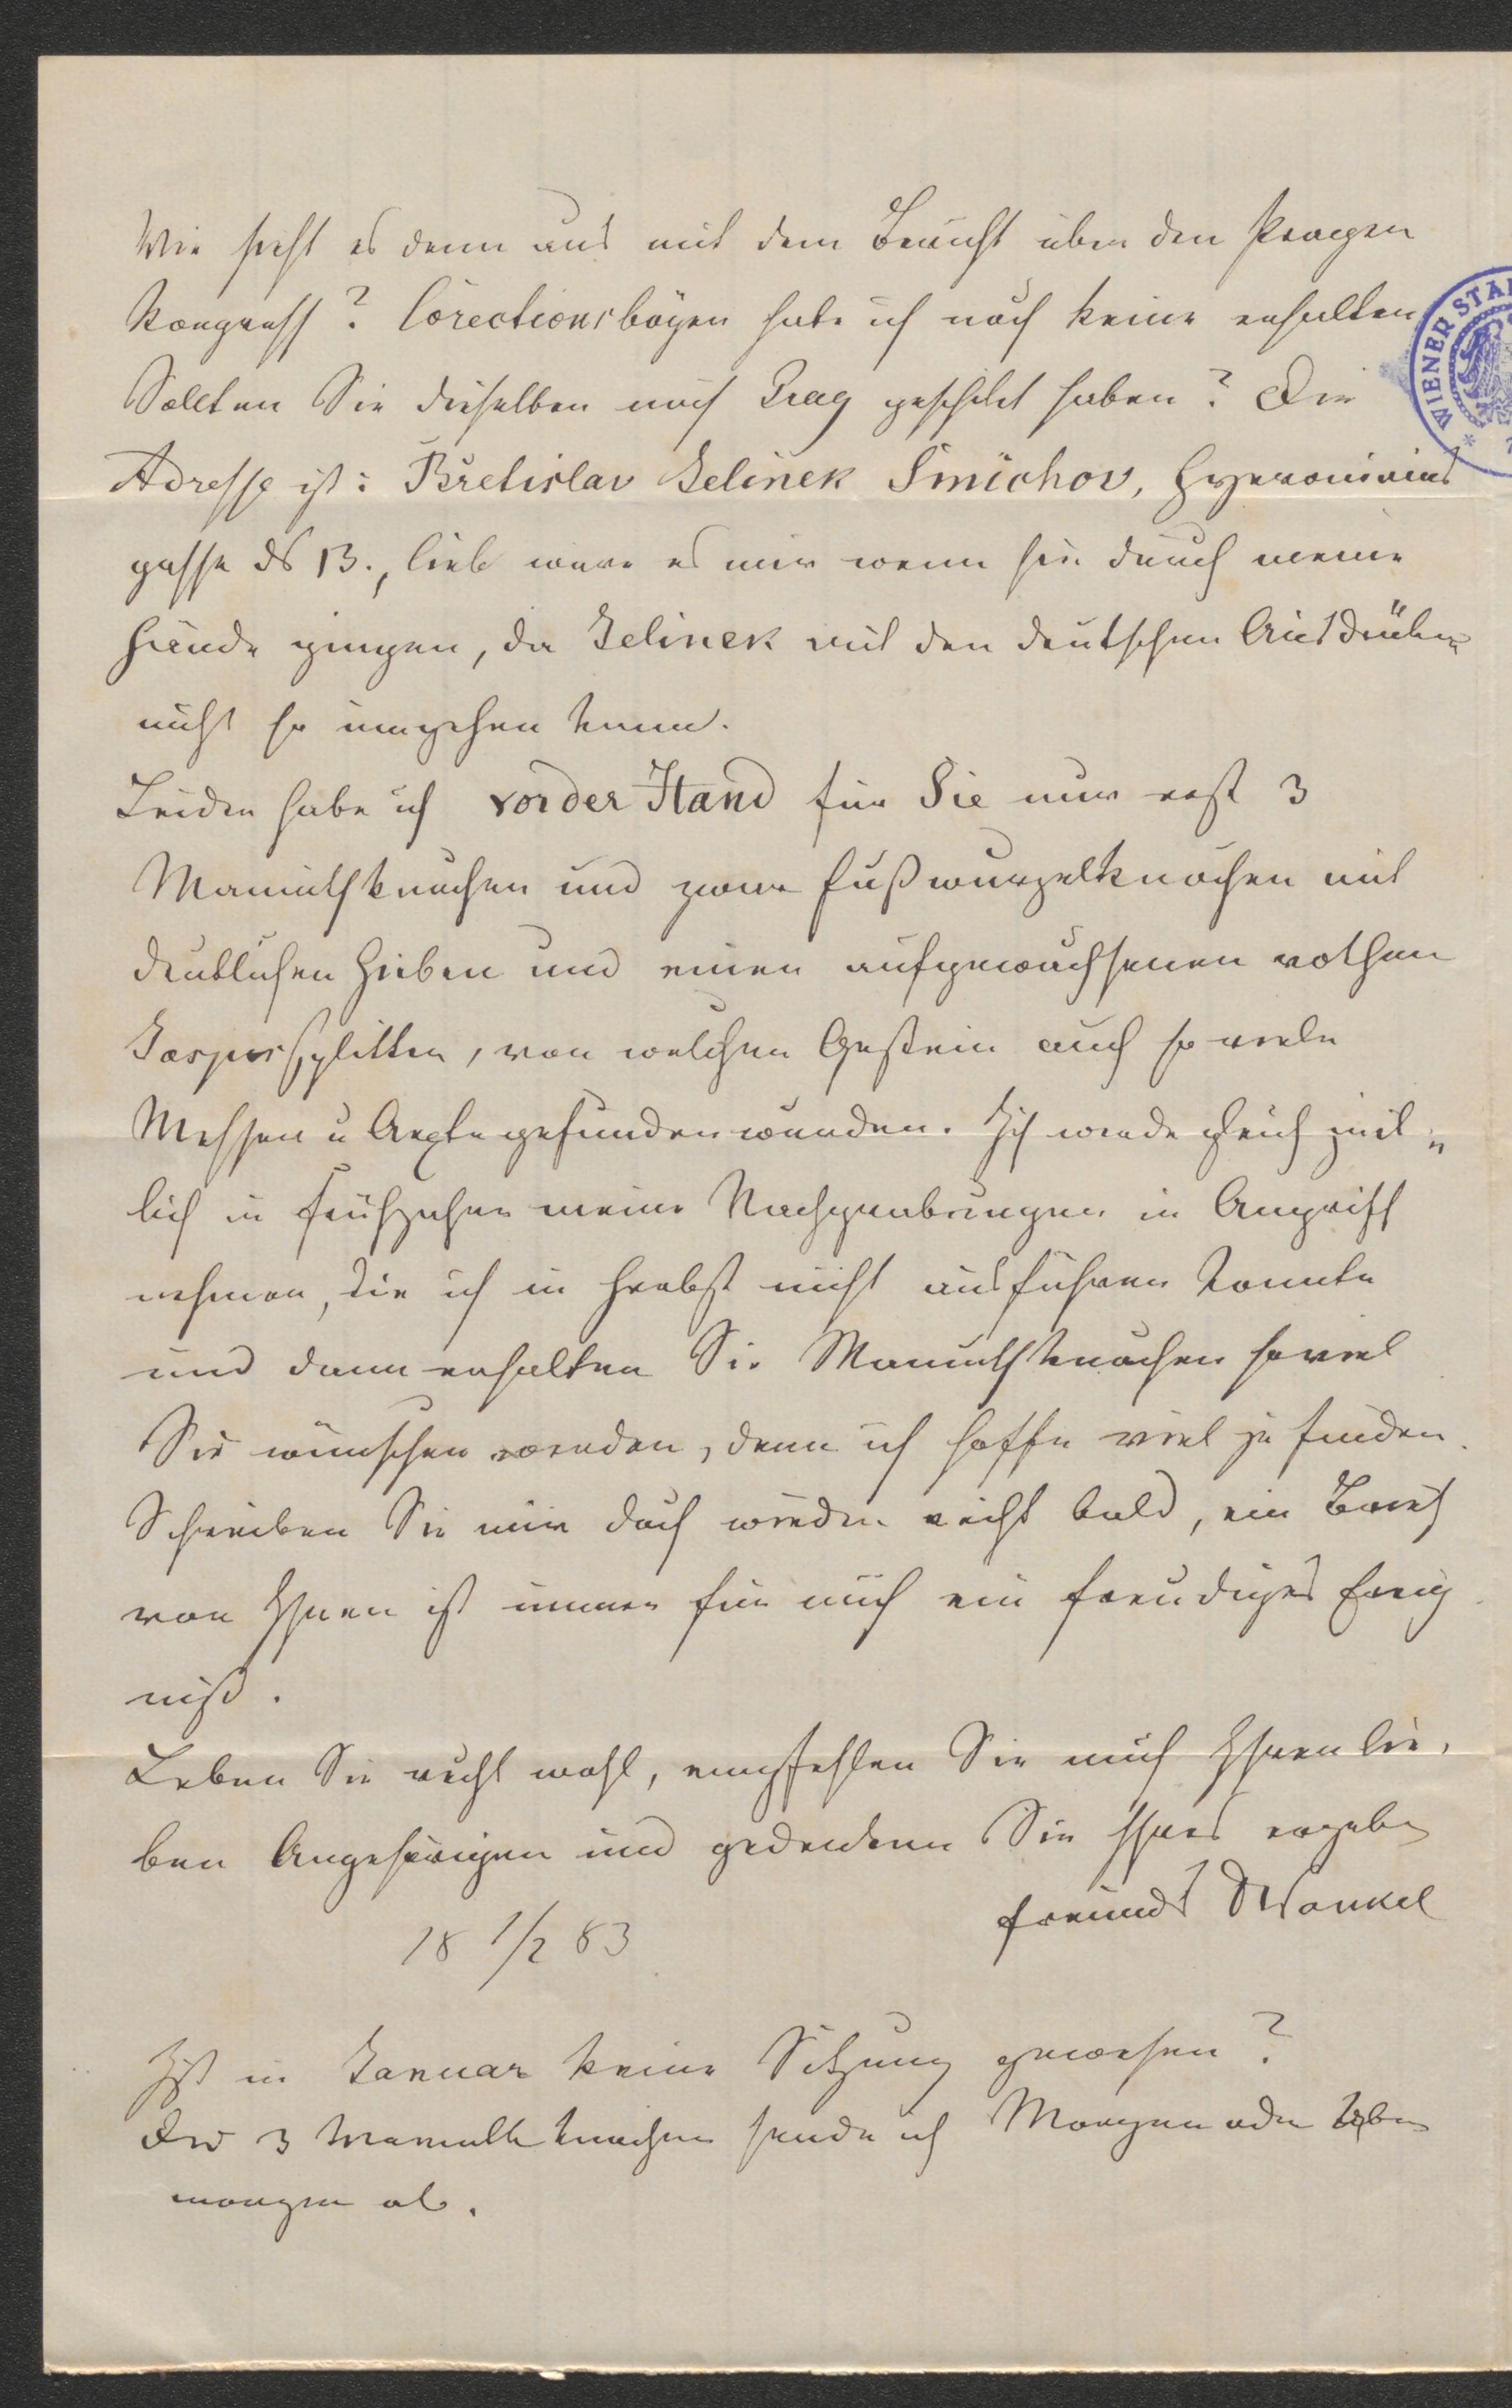 Wie sieht es denn aus mit dem Bericht über den Prager
Kongress? Corectionsbögen habe ich noch keine erhalten
Sollten Sie dieselben nach Prag geschikt haben? Die
Adresse ist: Břetislav Jelinek Smichov, Hyeronimius
gasse № 13., lieb wäre es mir wenn sie durch meine
Hände gingen, da Jelinek mit den deutschen Ausdrüken
nicht so umgehen kann.
Leider habe ich vorder Hand für Sie nur erst 3
Mamuthknochen und zwar Fußwurzelknochen mit
deutlichen Hieben und einen aufgewachsenen rothen
Jaspissplitter, von welchen Gestein auch so viele
Messer u Aexte gefunden wurden. Ich werde gleich zeit„
lich in Frühjahr meine Nachgrabungen in Angriff
nehmen, die ich in Herbst nicht ausführen konnte
und dann erhalten Sie Mamuthknochen soviel
Sie wünschen werden, denn ich hoffe viel zu finden.
Schreiben Sie mir doch wieder recht bald, ein Brief
von Ihnen ist immer für mich ein freudiges Ereig
niß.
Leben Sie recht wohl, empfehlen Sie mich Ihren lie,
ben Angehörigen und gedenken Sie Ihres ergeben
Freunds DWankel
18 1/2 83
Ist in Januar keine Sitzung gewesen?
Die 3 Mamuthknochen sende ich Morgen oder Über
morgen ab.
WIENER STA